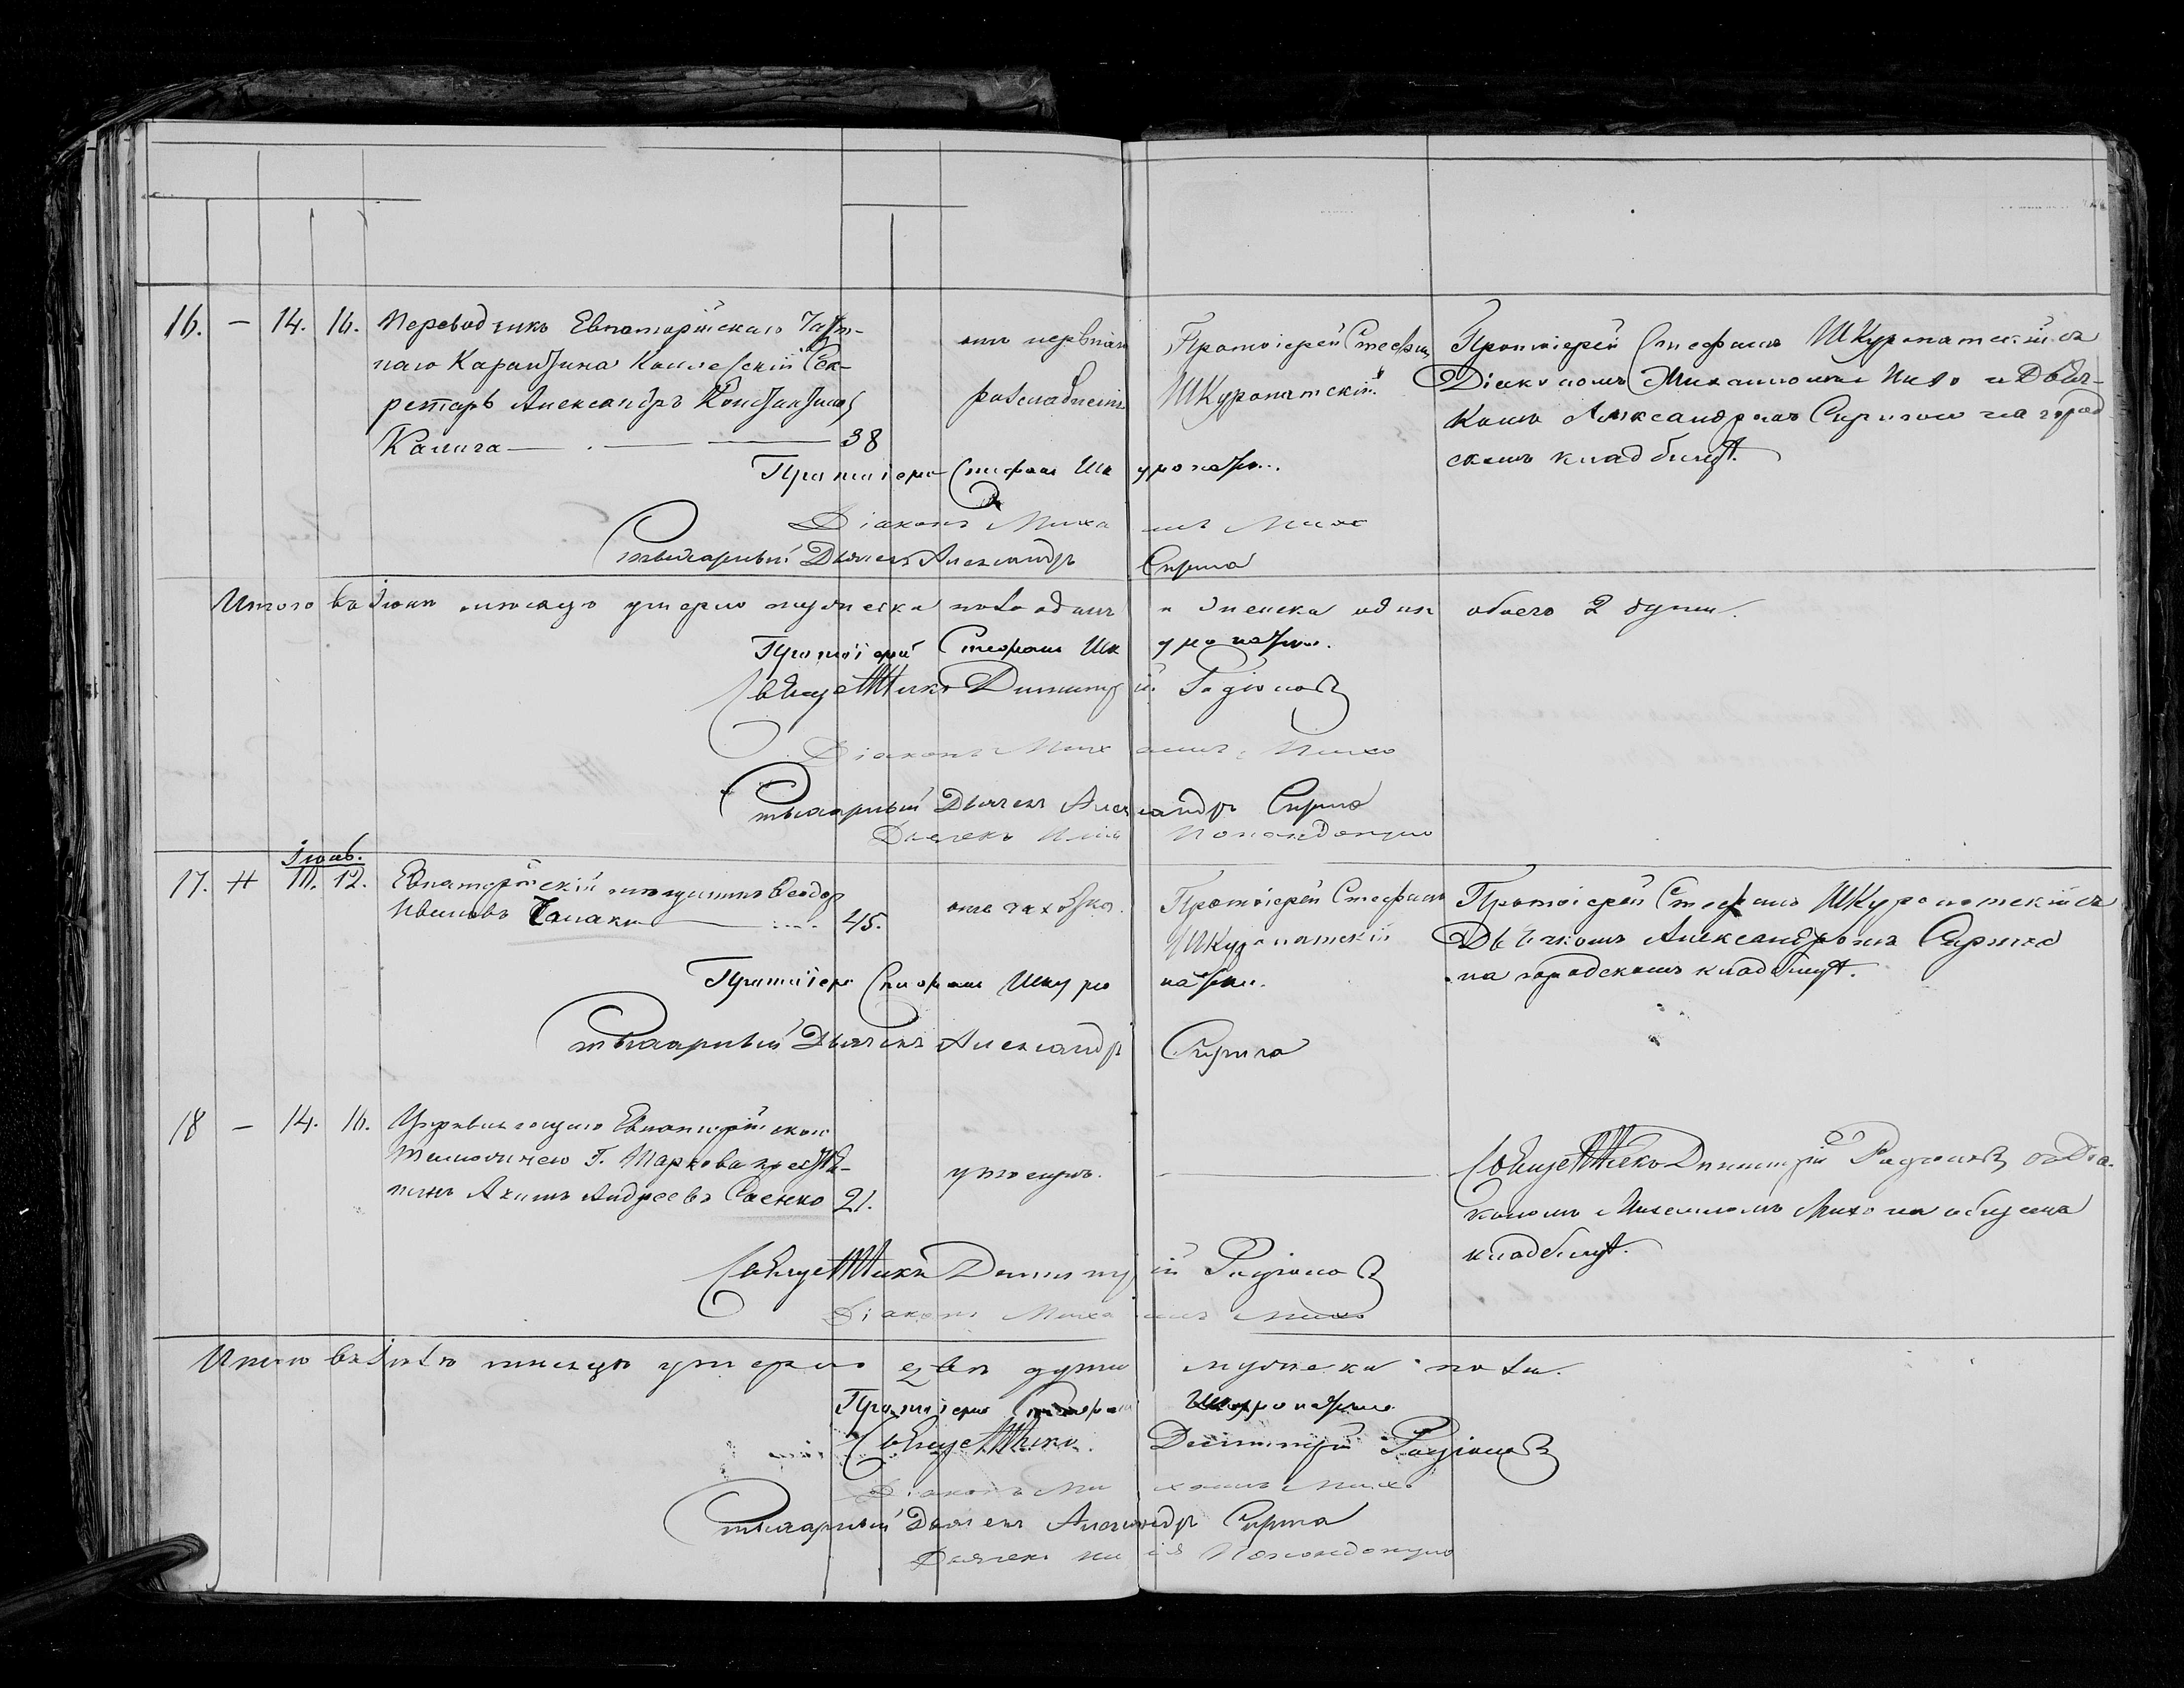 16. — 14. 16. Переводчикъ Евпаторійскаго Част-
наго Карантина Коллежскій Сек-
ретарь Александръ Константиновъ
Калига 38
отъ нервнаго
разслабленія
Протоіерей Стефанъ
Шкуропатскій
Протоіерей Стефанъ Шкуропатскій съ
Діакономъ Михаиломъ Михо и Дьяч-
комъ Александромъ Сиригою на город
скомъ кладбищѣ.
Протоіерей Стефанъ Шкуропатскій
Діаконъ Михаилъ Михо
Дьячекъ Александръ Сирига
Итого въ Іюнѣ мѣсяцѣ умерло мужеска пола одинъ и женска один обоего 2 души.
Протоіерей Стефанъ Шкуропатскій
Священникъ Димитрій Радіоновъ
Діаконъ Михаилъ Михо
Дьячекъ Александръ Сирига
Дьячекъ
Іюль.
17. 11. 12. Евпаторійскій мѣщанинъ Ѳеодоръ
Ивановъ 45.
отъ чахотки.
Протоіерей Стефанъ
Шкуропатскій
Протоіерей Стефанъ Шкуропатскій съ
Дьячкомъ Александромъ Сиригою
на городскомъ кладбищѣ.
Протоіерей Стефанъ Шкуропатскій
Дьячекъ Александръ Сирига
18 — 14. 16. Управляющаго Евпаторійскою
Г. Маркова крестья-
нинъ Акимъ Андреевъ Саенко 21.
утонулъ.
Священникъ Димитрій Радіоновъ съ Діа-
кономъ Михаиломъ Михо на общемъ
кладбищѣ.
Священникъ Димитрій Радіоновъ
Діаконъ Михаилъ Михо
Итого въ Іюлѣ мѣсяцѣ умерло двѣ души мужеска пола.
Протоіерей Стефанъ Шкуропатскій
Священникъ Димитрій Радіоновъ
Діаконъ Михаилъ Михо
Дьячекъ Александръ Сирига
Дьячекъ